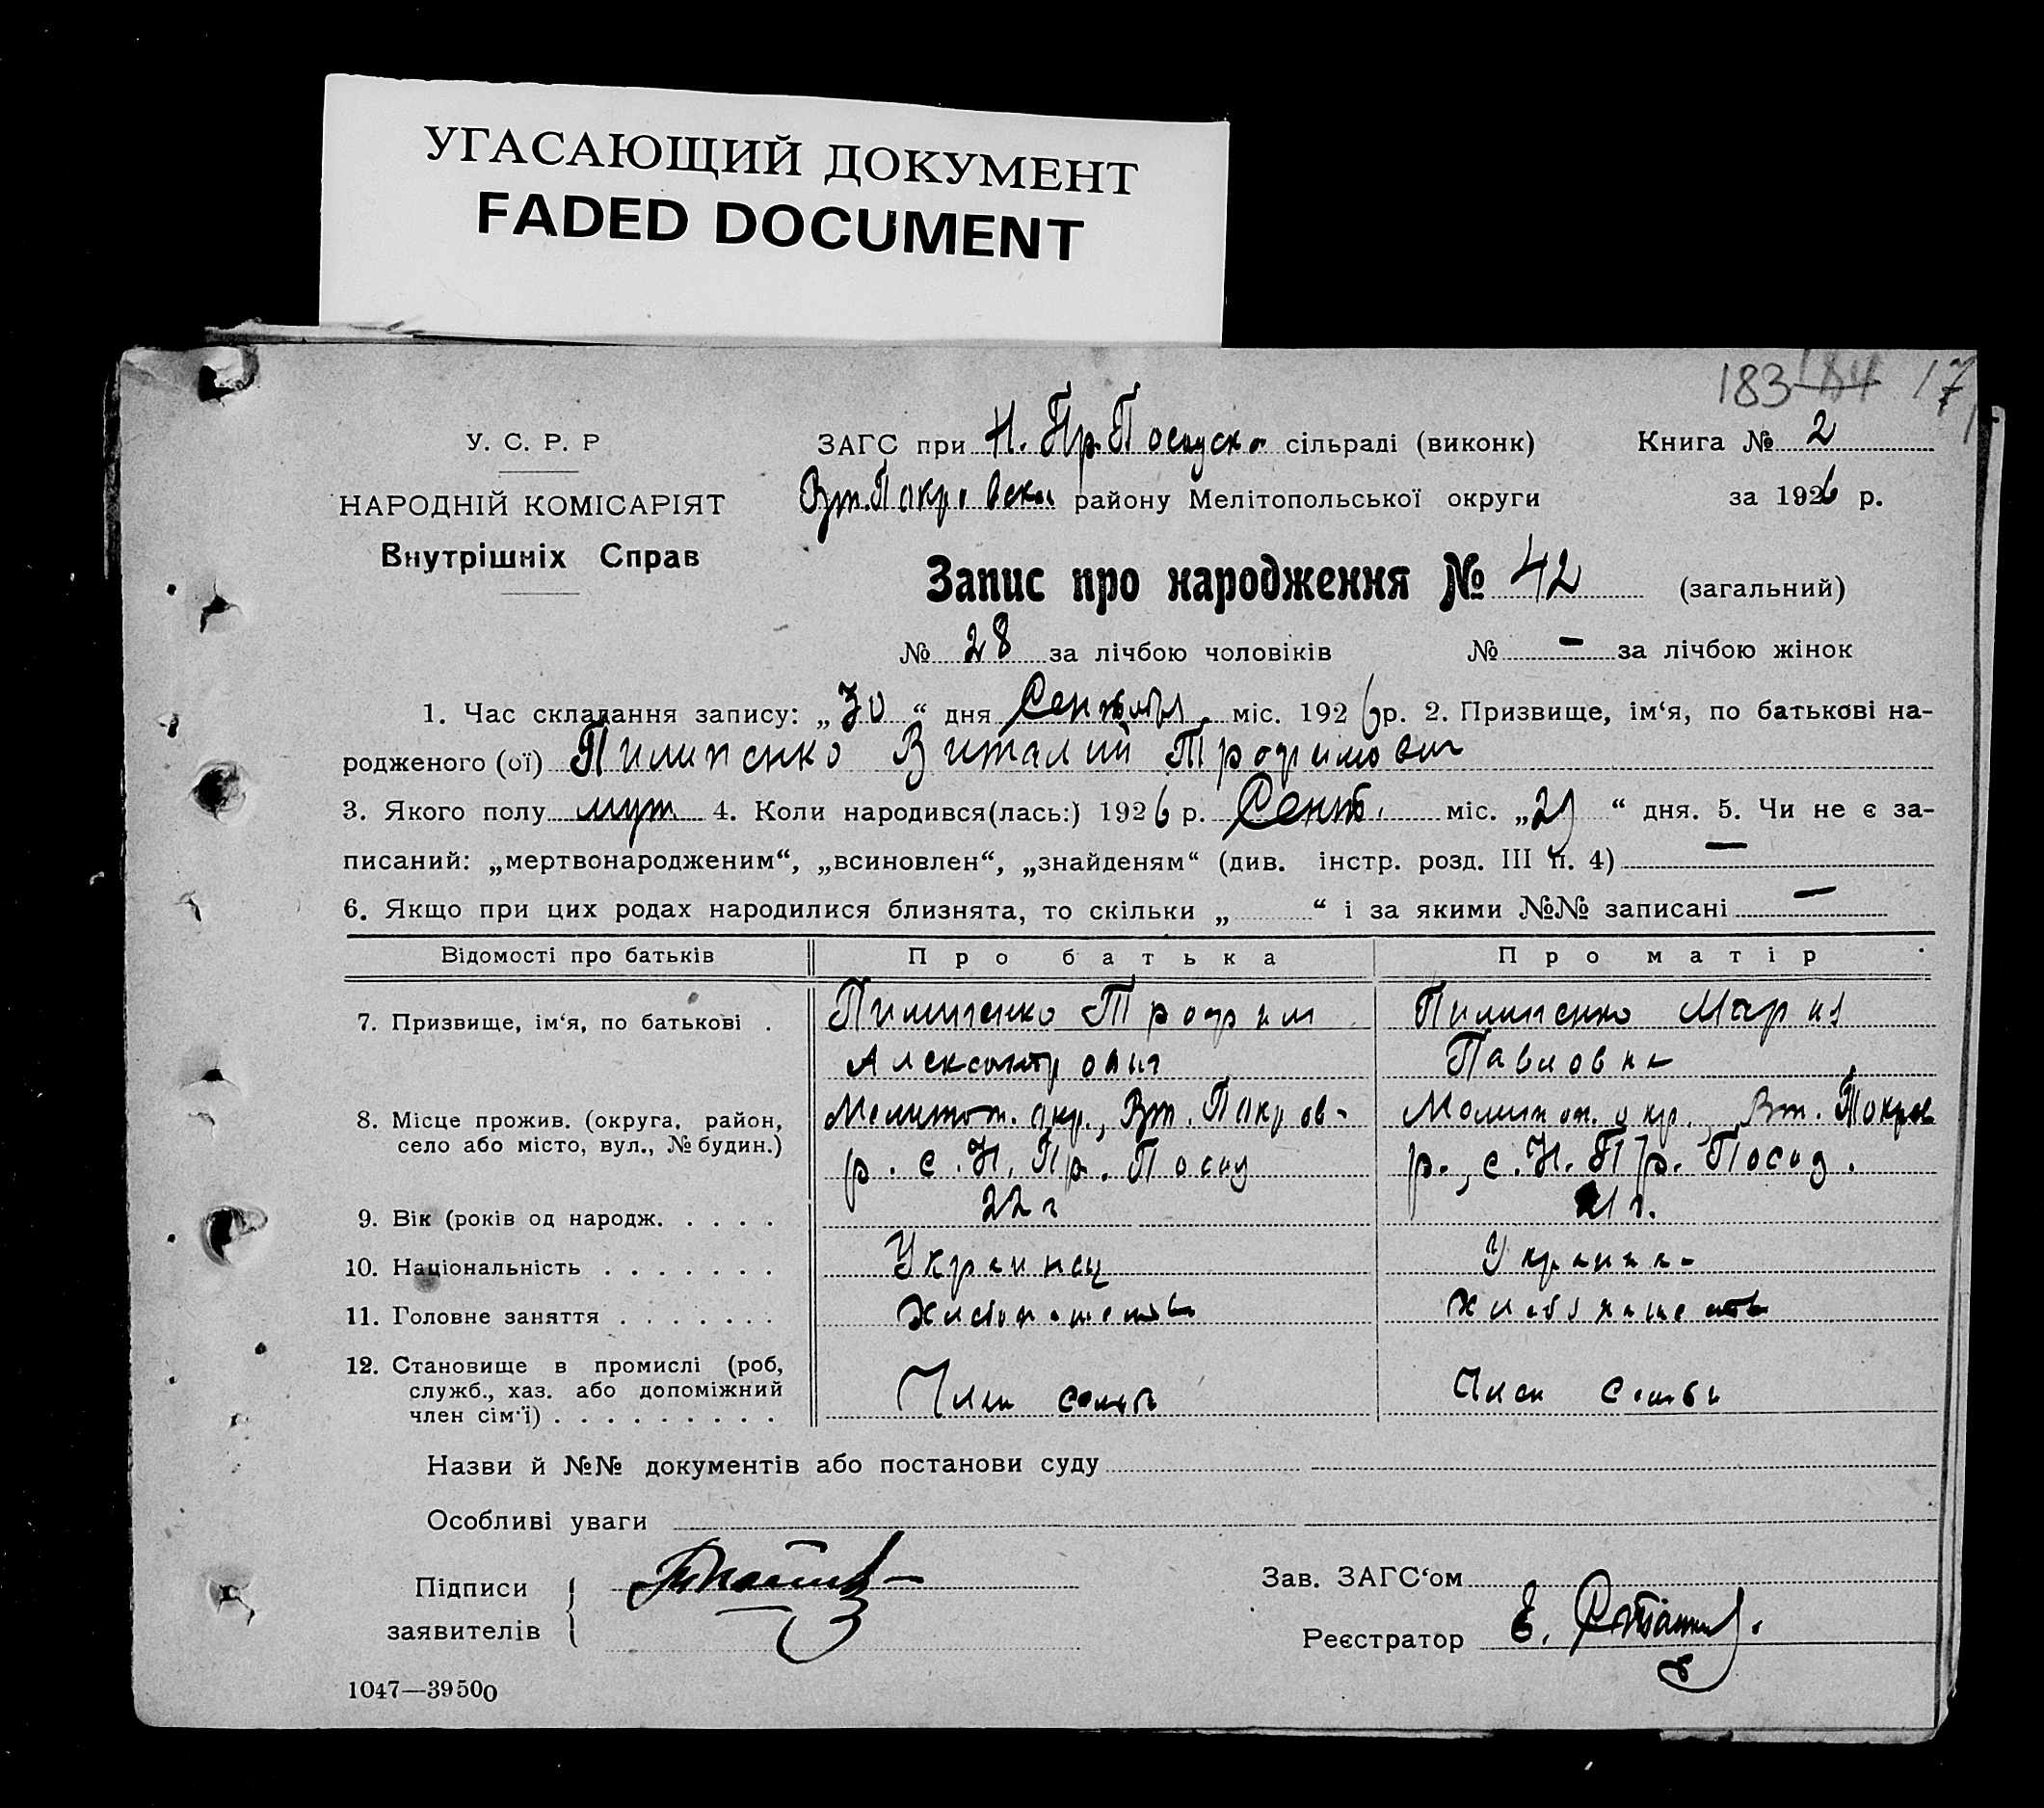 УГАСАЮЩИЙ ДОКУМЕНТ
FADED DOCUMENT
183 184 17
У. С. Р. Р
ЗАГС при Н. Пр. Посадск. сільраді (виконк)
Книга № 2
НАРОДНІЙ КОМІСАРІЯТ
Вт. Покровск. району Мелітопольської округи
за 1926 р.
Внутрішніх Справ
Запис про народження № 42 (загальний)
№ 28 за лічбою чоловіків № — за лічбою жінок
1. Час складання запису: „30“ дня Сентября міс. 1926 р. 2. Призвище, ім‘я, по батькові на-
родженого (ої) Пилипенко Виталий Трофимович
3. Якого полу муж 4. Коли народився(лась:) 1926 р. Сент. міс. „29“ дня. 5. Чи не є за-
писаний: „мертвонародженим“, „всиновлен“, „знайденям“ (див. інстр. розд. III п. 4) —
6. Якщо при цих родах народилися близнята, то скільки „ “ і за якими №№ записані —
Відомості про батьків Про батька Про матір
7. Призвище, ім‘я, по батькові . Пилипенко Трофим Пилипенко Мария
Александрович Павловна
8. Місце прожив. (округа, район, Мелитоп. окр., Вт. Покров- Мелитоп. окр., Вт. Покров
село або місто, вул., № будин.) р. с. Н. Пр. Посад р., с. Н. Пр. Посад.
9. Вік (років од народж. . . . . 22 г 21 г.
10. Національність . . . . . . . Украинец Украинка
11. Головне заняття . . . . . . . Хлебопашество Хлебопашество
12. Становище в промислі (роб,
служб., хаз. або допоміжний
член сім‘ї) . . . . . . . . . Член семьи Член семьи
Назви й №№ документів або постанови суду
Особливі уваги
Підписи
заявителів
Зав. ЗАГС‘ом
Реєстратор Е.
1047—39500